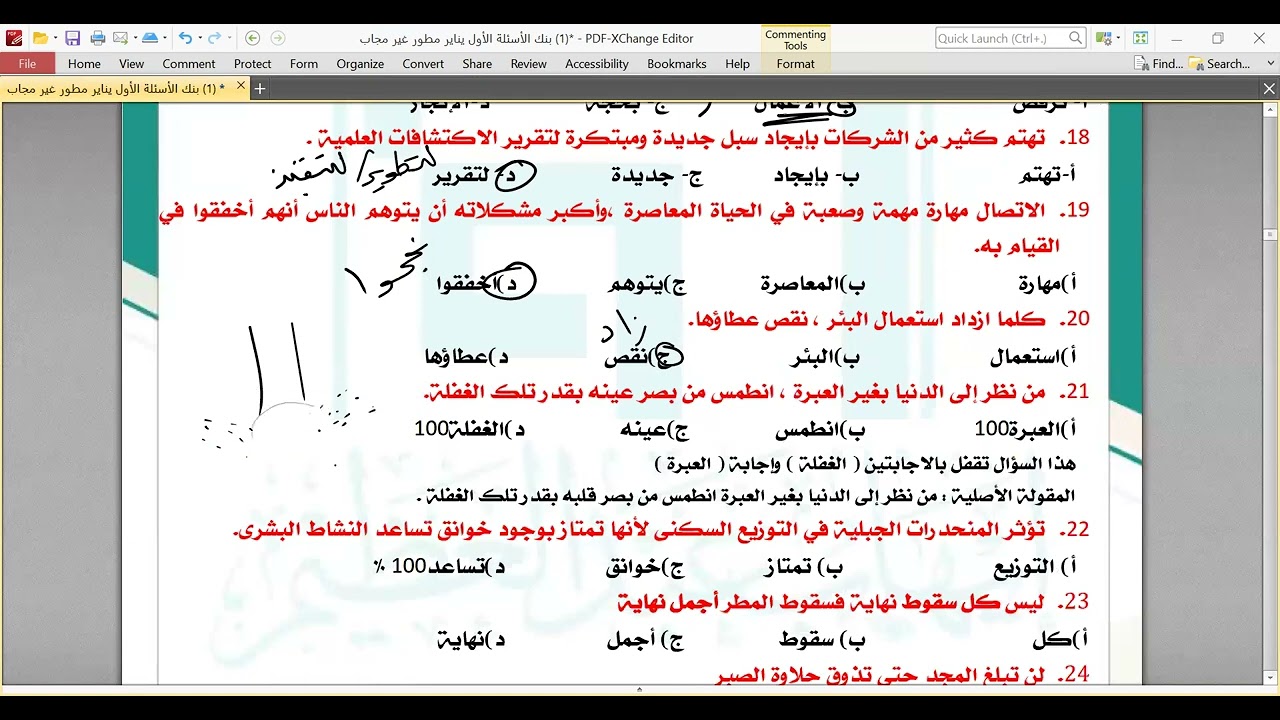 *(1) بنك الأسئلة الأول يناير مطور غير مجاب - PDF-XChange Editor
Commenting Tools
Quick Launch (Ctrl+.)
File Home View Comment Protect Form Organize Convert Share Review Accessibility Bookmarks Help Format Find... Search...
(1) بنك الأسئلة الأول يناير مطور غير مجاب *
الأعمال
18. تهتم كثير من الشركات بإيجاد سبل جديدة ومبتكرة لتقرير الاكتشافات العلمية .
لتطوير/
أ-تهتم ب- بإيجاد ج- جديدة د- لتقرير
19. الاتصال مهارة مهمة وصعبة في الحياة المعاصرة ،وأكبر مشكلاته أن يتوهم الناس أنهم أخفقوا في
القيام به.
نجحوا
أ)مهارة ب)المعاصرة ج)يتوهم د)اخفقوا
20. كلما ازداد استعمال البئر ، نقص عطاؤها.
زاد
أ)استعمال ب)البئر ج)نقص د)عطاؤها
21. من نظر إلى الدنيا بغير العبرة ، انطمس من بصر عينه بقدر تلك الغفلة.
أ)العبرة100 ب)انطمس ج)عينه د)الغفلة100
هذا السؤال تقفل بالاجابتين ( الغفلة ) وإجابة ( العبرة )
المقولة الأصلية : من نظر إلى الدنيا بغير العبرة انطمس من بصر قلبه بقدر تلك الغفلة .
22. تؤثر المنحدرات الجبلية في التوزيع السكنى لأنها تمتاز بوجود خوانق تساعد النشاط البشرى.
أ) التوزيع ب) تمتاز ج)خوانق د)تساعد100 %
23. ليس كل سقوط نهاية فسقوط المطر أجمل نهاية
أ)كل ب) سقوط ج) أجمل د)نهاية
24. لن تبلغ المجد حتى تذوق حلاوة الصبر